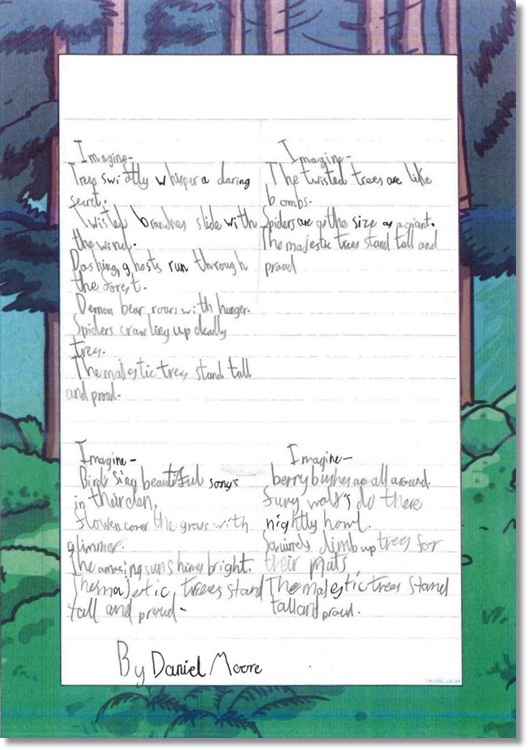 Imagine-
Trees swiftly whisper a daring
secret.
Twisted branches slide with
the wind.
Dashing ghosts run through
the forest.
Demon bear roars with hunger.
Spiders crawling up deadly
trees.
The majestic trees stand tall
and proud.
Imagine-
The twisted trees are like
bombs.
Spiders are the size as a giant.
The majestic trees stand tall and
proud
Imagine-
Birds sing beautiful songs
in their den,
flowers cover the grass with
glimmer.
The amazing suns hines bright.
The majestic trees stand
tall and proud-
Imagine-
berry bushes are all around.
furry wolfs do there
nightly howl.
Squirrels climb up trees for
their nuts,
The majestic trees stand
tall and proud.
By Daniel Moore